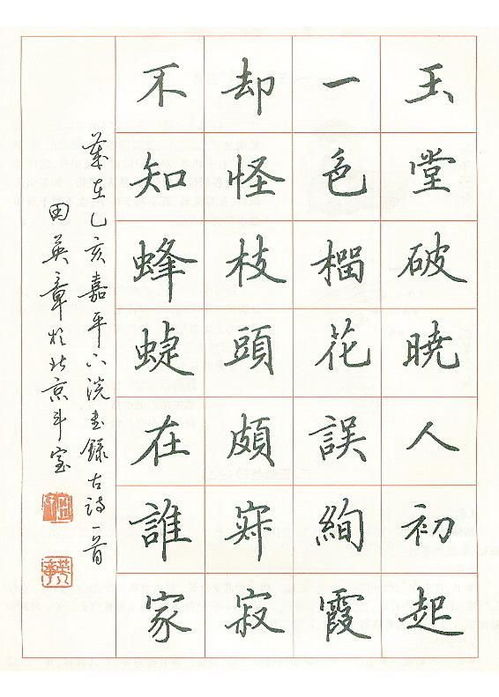 玉堂破晓人初起
一色榴花誤絢霞
却怪枝頭頗寂寂
不知蜂蜨在誰家
歲在乙亥嘉平下浣書錄古詩一首
田英章於北京斗室